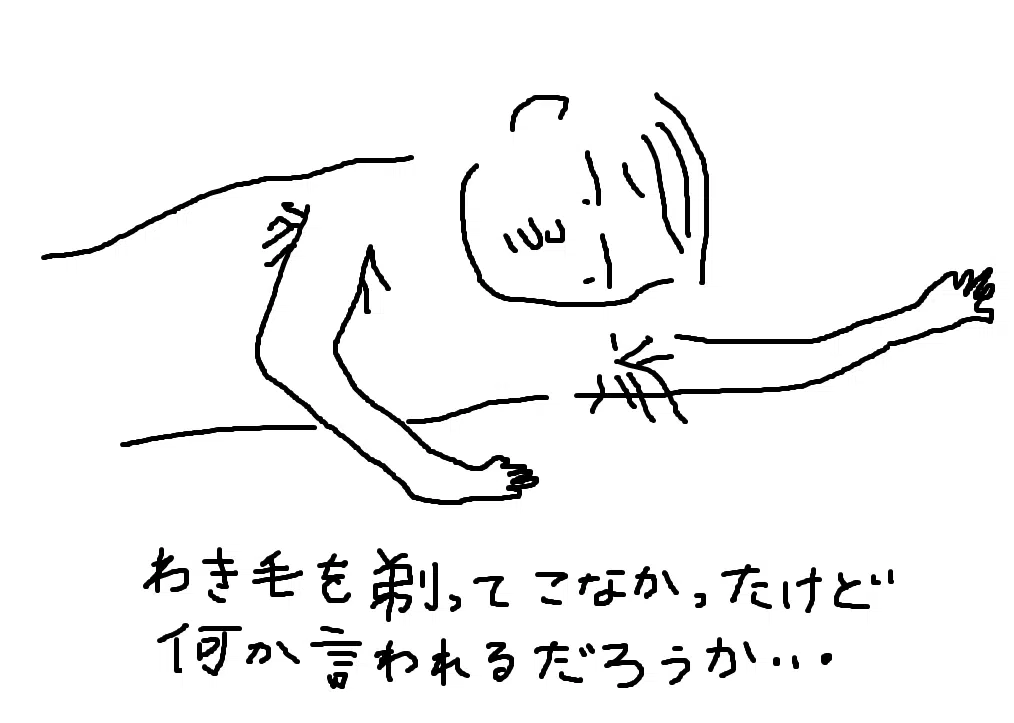 わき毛を剃ってこなかったけど
何か言われるだろうか...